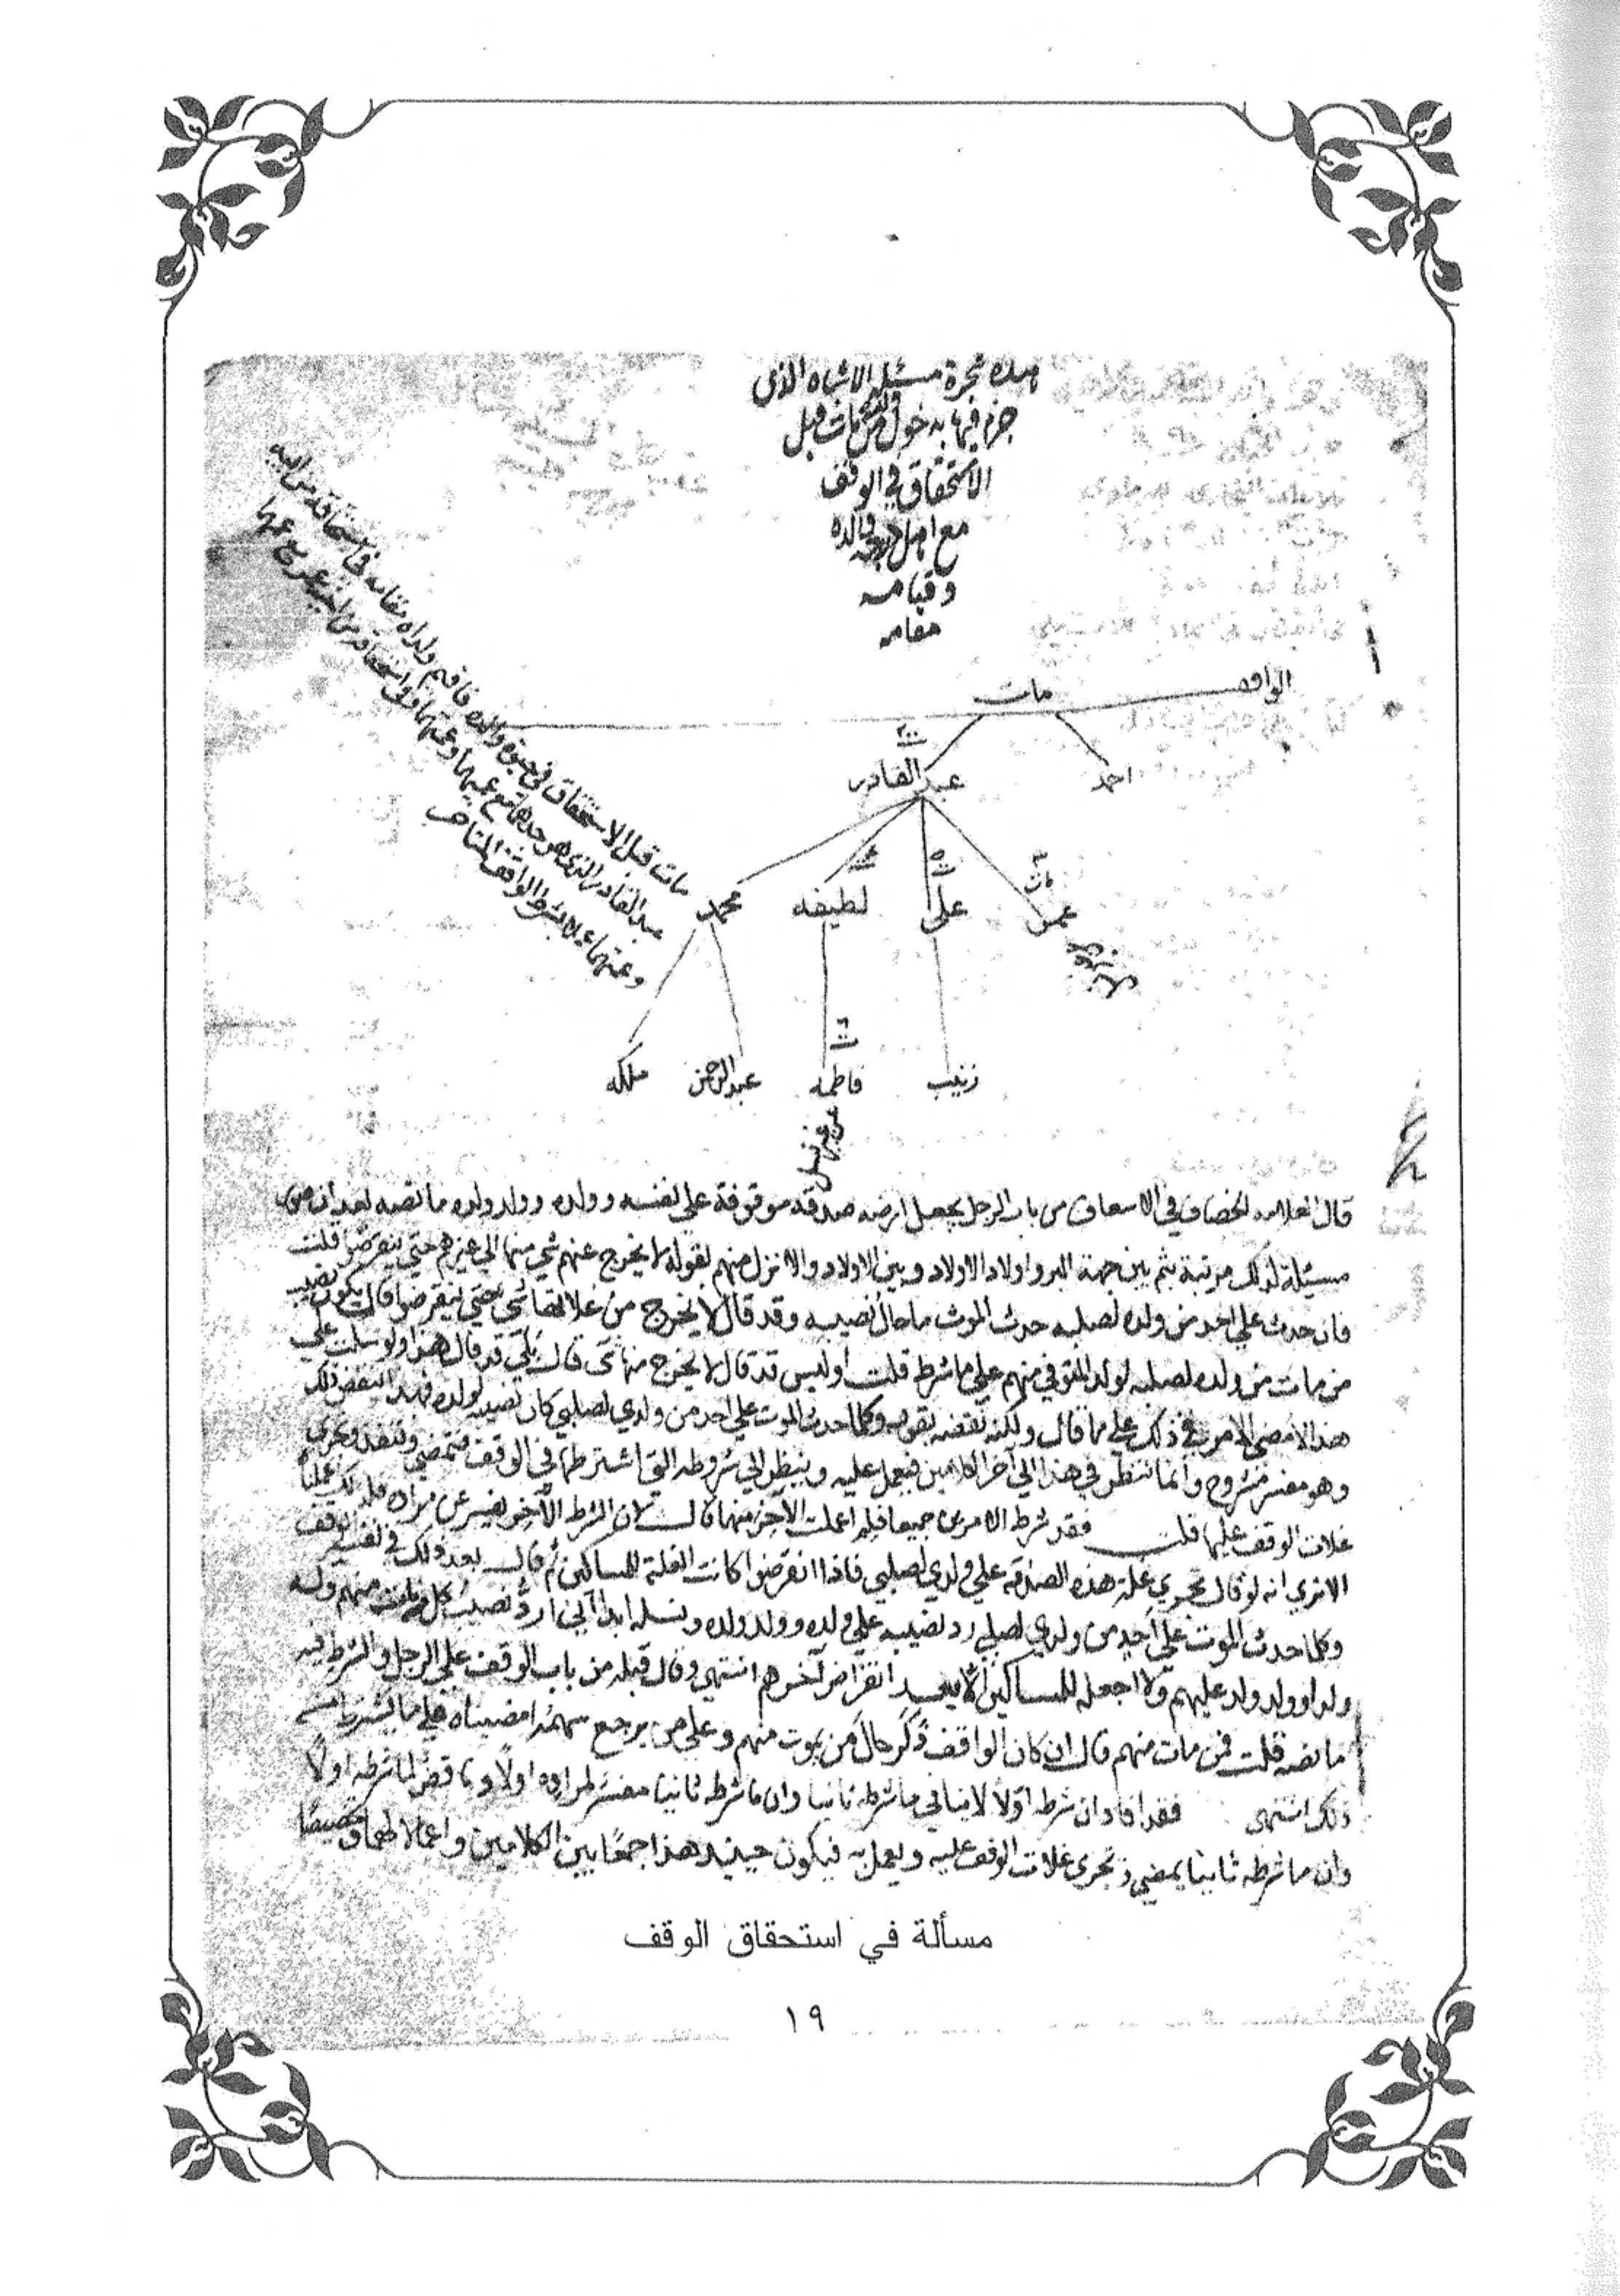 هذه شجرة مسئلة الاشباه الذي
جزم فيها بدخول ولد من مات قبل
الاستحقاق في الوقف
مع اهل درجة والده
وقيامه
مقامه
الواقف
مات
احمد
عبد القادر
مات قبل الاستحقاق في حيوة والده فاقيم ولداه مقامه في استحقاقه من ابيه
عبد القادر الذي هو جدهما مع عميهما وعمتهما وفي استحقاقه من اخيه عمر مع عمهما
وعمتهما عملا بشرط الواقف المناسب
عمر
علي
لطيفه
محمد
زينب
فاطمه
عبد الرحمن
ملكه
عن غير نسل
قال العلامه الخصاف في الاسعاف من باب الرجل يجعل ارضه صدقة موقوفة على نفسه وولده وولد ولده ما نصه بعد ان
مسئلة لذلك مرتبة ثم بين جهة البر واولاد الاولاد وبين الاولاد والانزل منهم بقوله لا يخرج عنهم شي منها الي غيرهم حتي ينقرضوا قلت
فان حدث علي احد من ولده لصلبه حدث الموت ما حال نصيبه وقد قال لا يخرج من غلاتها شي حتي ينقرضوا قال يكون نصيب
من مات من ولده لصلبه لولد المتوفي منهم علي ما شرط قلت أوليس قد قال لا يخرج منها شي قال بلي قد قال هذا ولو سكت علي
هذا لامضي الامر في ذلك علي ما قال ولكنه نقضه بقوله وكلما حدث الموت علي احد من ولدي لصلبي كان نصيبه لولده فهذا ينقض ذلك
وهو مفسر مشروح وانما ننظر في هذا الي آخر الكلامين فيعمل عليه وينظر الي شروطه التي اشترطها في الوقف فتمضي وتنفذ وتجري
غلات الوقف عليها قلت فقد شرط الامرين جميعا فلم اعملت الآخر منهما قال لان الشرط الآخر يفسر عن مراده فلذلك عملنا
الا تري انه لو قال تجري غلة هذه الصدقة علي ولدي لصلبي فاذا انقرضوا كانت الغلة للمساكين ثم قال بعد ذلك في
وكلما حدث الموت علي احد من ولدي لصلبي رد نصيبه علي ولده وولد ولده ونسله ابدا اني ارد نصيب كل من مات منهم وله
ولد او ولد ولد عليهم ولا اجعله للمساكين الا بعد انقراض آخرهم انتهي وقال قبله من باب الوقف علي الرجل والشرط فيه
ما نصه قلت فمن مات منهم قال ان كان الواقف ذكر حال من يموت منهم وعلي من يرجع سهمه امضيناه علي ما
ذلك انتهى فقد افاد ان شرطه اولا لا ينافي ما شرطه ثانيا وان ما شرطه ثانيا مفسر لمراده اولا وناقض لما شرطه اولا
وان ما شرطه ثانيا يمضي وتجري غلات الوقف عليه ويعمل به فيكون حينئذ هذا جمعا بين الكلامين واعمالا لهما
مسألة في استحقاق الوقف
١٩